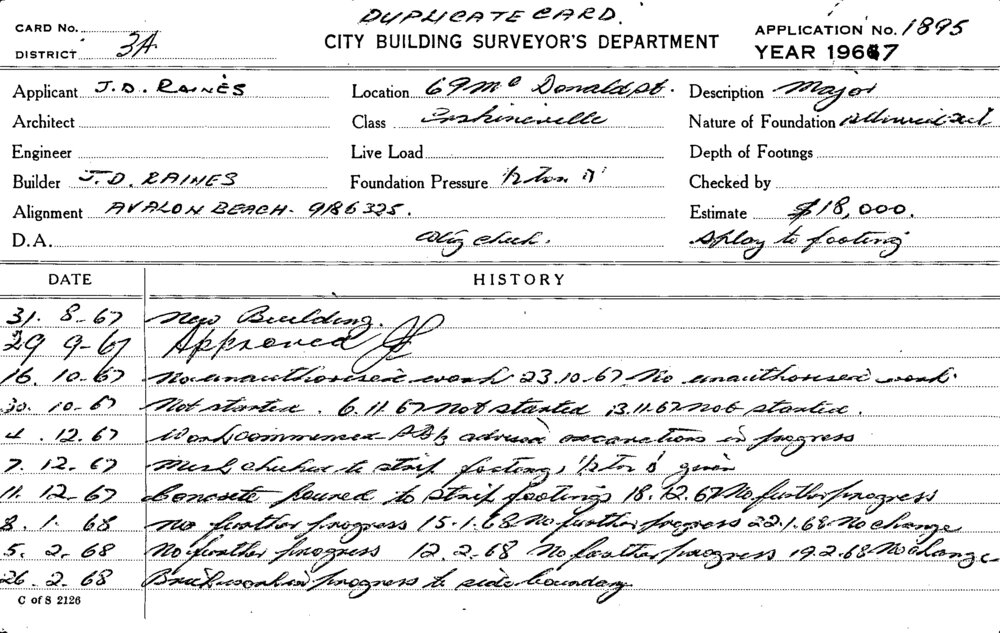 DUPLICATE CARD.
CARD No.
CITY BUILDING SURVEYOR'S DEPARTMENT
APPLICATION No. 1895
DISTRICT 3A
YEAR 1967
Applicant J.D. RAINES Location 69 Mc Donald St. Description Major
Architect Class Erskineville Nature of Foundation
Engineer Live Load Depth of Footings
Builder J.D. RAINES Foundation Pressure 1/2 ton Checked by
Alignment AVALON BEACH. 9186325. Estimate $18,000.
D.A. check. Splay to footing
DATE HISTORY
31. 8-67 New Building.
29 9-67 Approved
16. 10-67 No unauthorised work 23.10.67 No unauthorised work.
30. 10-67 Not started. 6.11.67 Not started 13.11.67 Not started.
4. 12.67 Work commenced advised excavations in progress
7. 12. 67 Mesh checked to strip footing, 1/2 ton given
11. 12-67 Concrete poured to strip footings 18.12.67 No further progress
8. 1. 68 No further progress 15.1.68 No further progress 22.1.68 No change
5. 2. 68 No further progress 12.2.68 No further progress 19.2.68 No change
26. 2. 68 Brickwork in progress to side boundary
C of S 2126